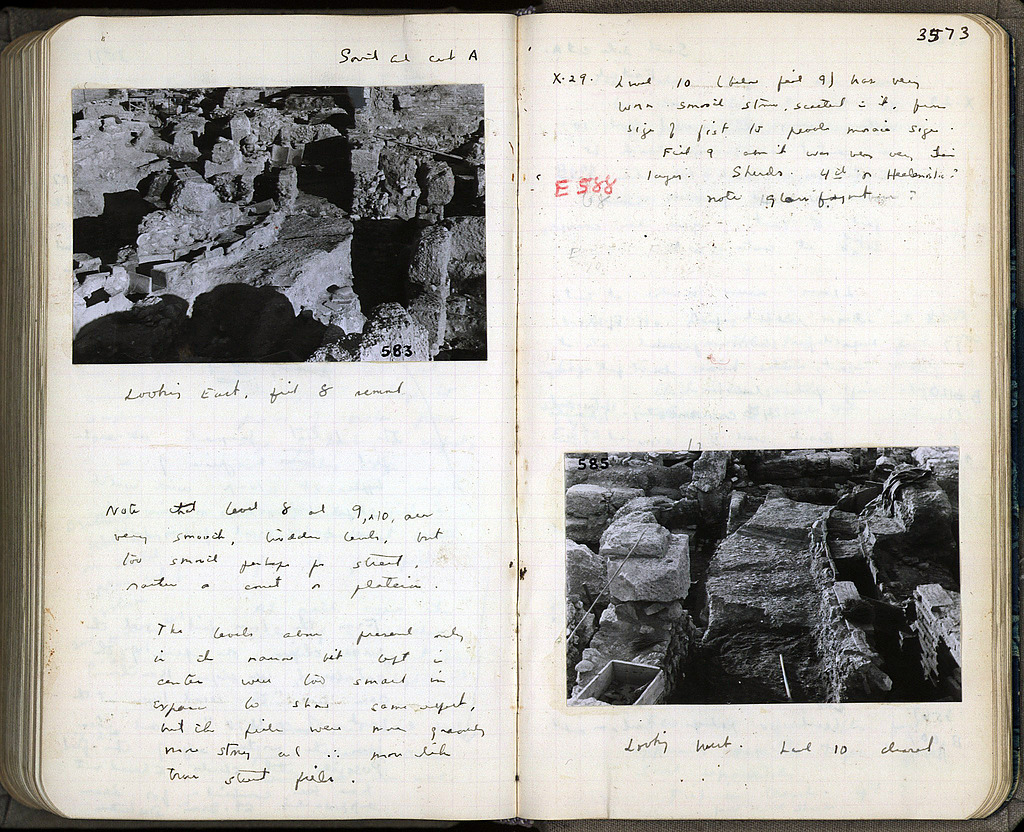 South end cut A
583
Looking East, fill 8 removed
Note that level 8 and 9, & 10, are
very smooth, trodden levels, but
too smooth perhaps for street,
rather a court or plateia.
The levels above present only
in the narrow bit left in
center were too small in
expanse to show same effect,
but the fields were more gravelly
more stony and ∴ more like
true street fields.
3573
X.29. Level 10 (below field 9) has very
worn smooth stones, scattered in it, from
size of fist to pebble mosaic size.
Field 9 above it was very very thin
layer. Sherds. 4th or Hellenistic?
E 588
note glass fragment ?
585
Looking West. Level 10 cleared